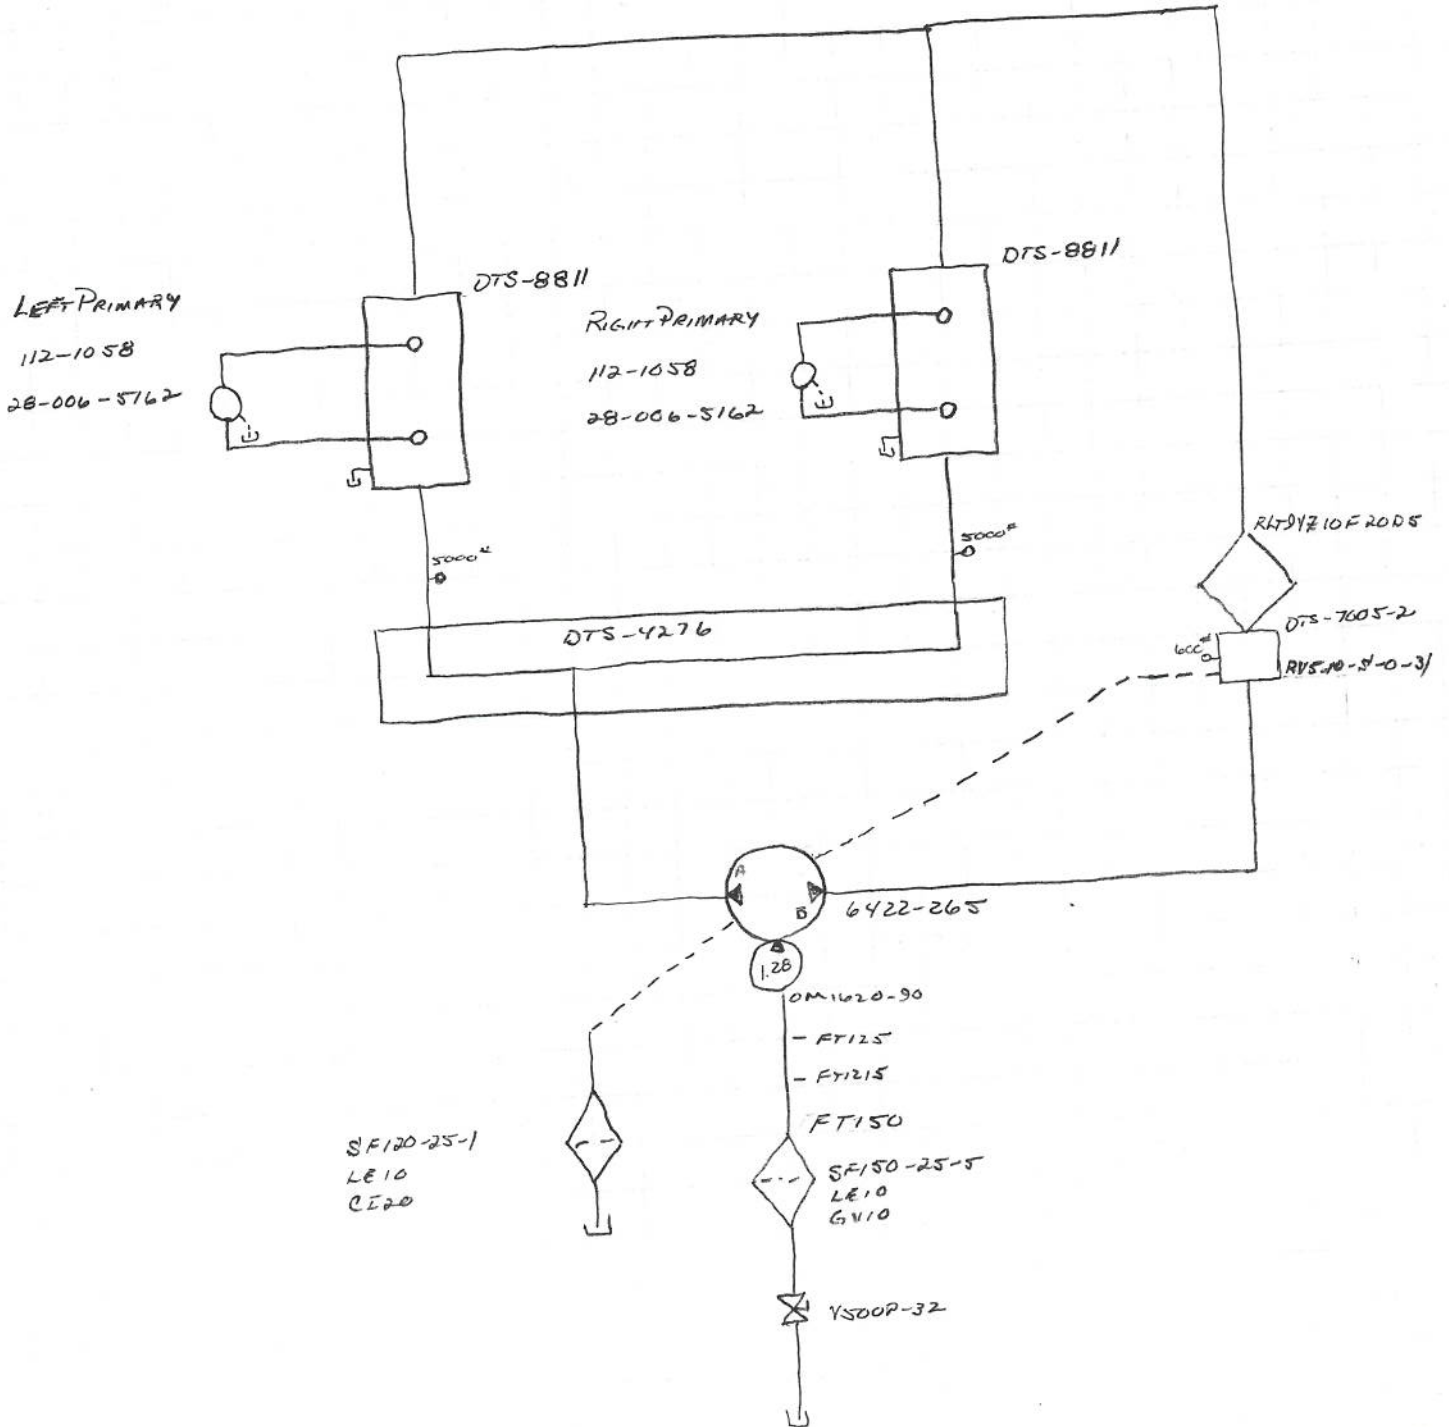 DTS-8811
LEFT PRIMARY
112-1058
28-006-5162
DTS-8811
RIGHT PRIMARY
112-1058
28-006-5162
5000#
5000#
DTS-4276
DTS-7605-2
600#
A
B
6422-265
1.28
OM1620-90
FT125
FT1215
FT150
SF120-25-1
LE10
CI20
SF150-25-5
LE10
GV10
V500P-32